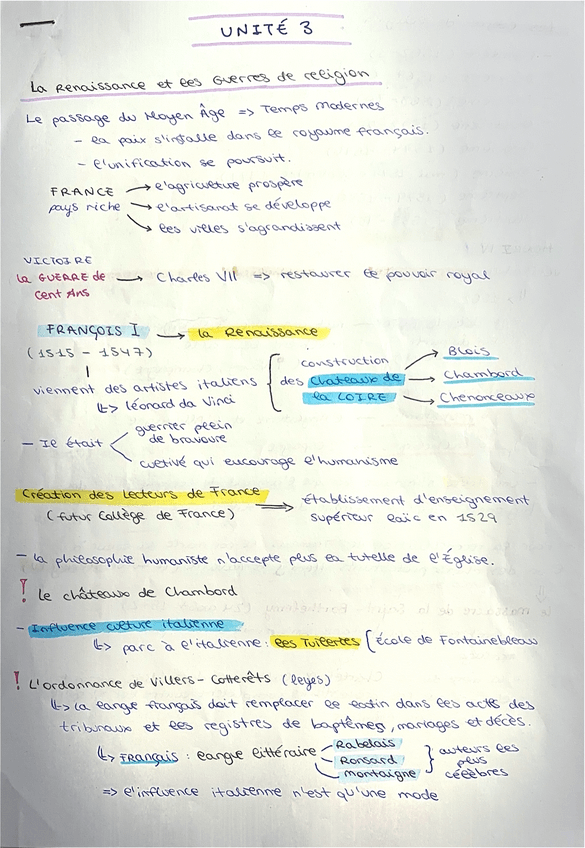 UNITÉ 3
La Renaissance et les Guerres de religion
Le passage du Moyen Âge => Temps modernes
- la paix s'installe dans le royaume français.
- l'unification se poursuit.
FRANCE pays riche → l'agriculture prospère
→ l'artisanat se développe
→ les villes s'agrandissent
VICTOIRE
la GUERRE de Cent Ans → Charles VII => restaurer le pouvoir royal
FRANÇOIS I → la Renaissance
(1515 - 1547)
viennent des artistes italiens
↳ léonard da Vinci
construction
des Chateaux de
la LOIRE
→ Blois
→ Chambord
→ Chenonceaux
- Il était
guerrier plein
de bravoure
cultivé qui encourage l'humanisme
Création des lecteurs de France
(futur Collège de France)
⇒ établissement d'enseignement
supérieur laïc en 1529
- la philosophie humaniste n'accepte plus la tutelle de l'Église.
! le châteaux de Chambord
- Influence culture italienne
↳ parc à l'italienne : les Tuileries [école de Fontainebleau
! L'ordonnance de Villers-Cotterêts (leyes)
↳ la langue français doit remplacer le latin dans les actes des
tribunaux et les registres de baptêmes, mariages et décès.
↳ FRANÇAIS : langue littéraire
Rabelais
Ronsard
montaigne
} auteurs les
plus
célèbres
=> l'influence italienne n'est qu'une mode